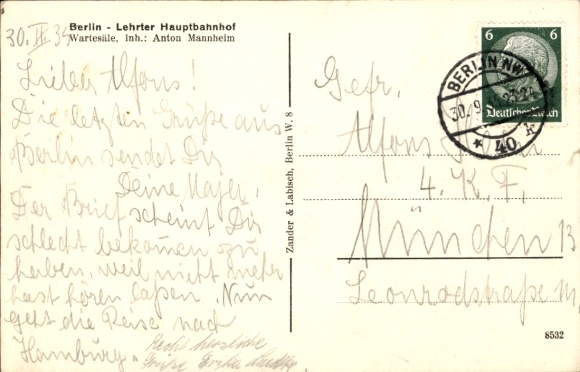 Berlin - Lehrter Hauptbahnhof
Wartesäle, Inh.: Anton Mannheim
30.
Lieber Alfons!
Die letzten Grüße aus
Berlin sendet Dir
Deine
Der Brief scheint Dir
schlecht bekomen zu
haben, weil nicht mehr
hast hören laßen. Nun
geht die Reise nach
Hamburg.
Recht herzliche
Grüße
Zander & Labisch, Berlin W. 8
6 6
Deutsches Reich
BERLIN NW
30.9
* 40
Gefr.
Alfons
4. K. F.
München 13
Leonrodstraße
8532